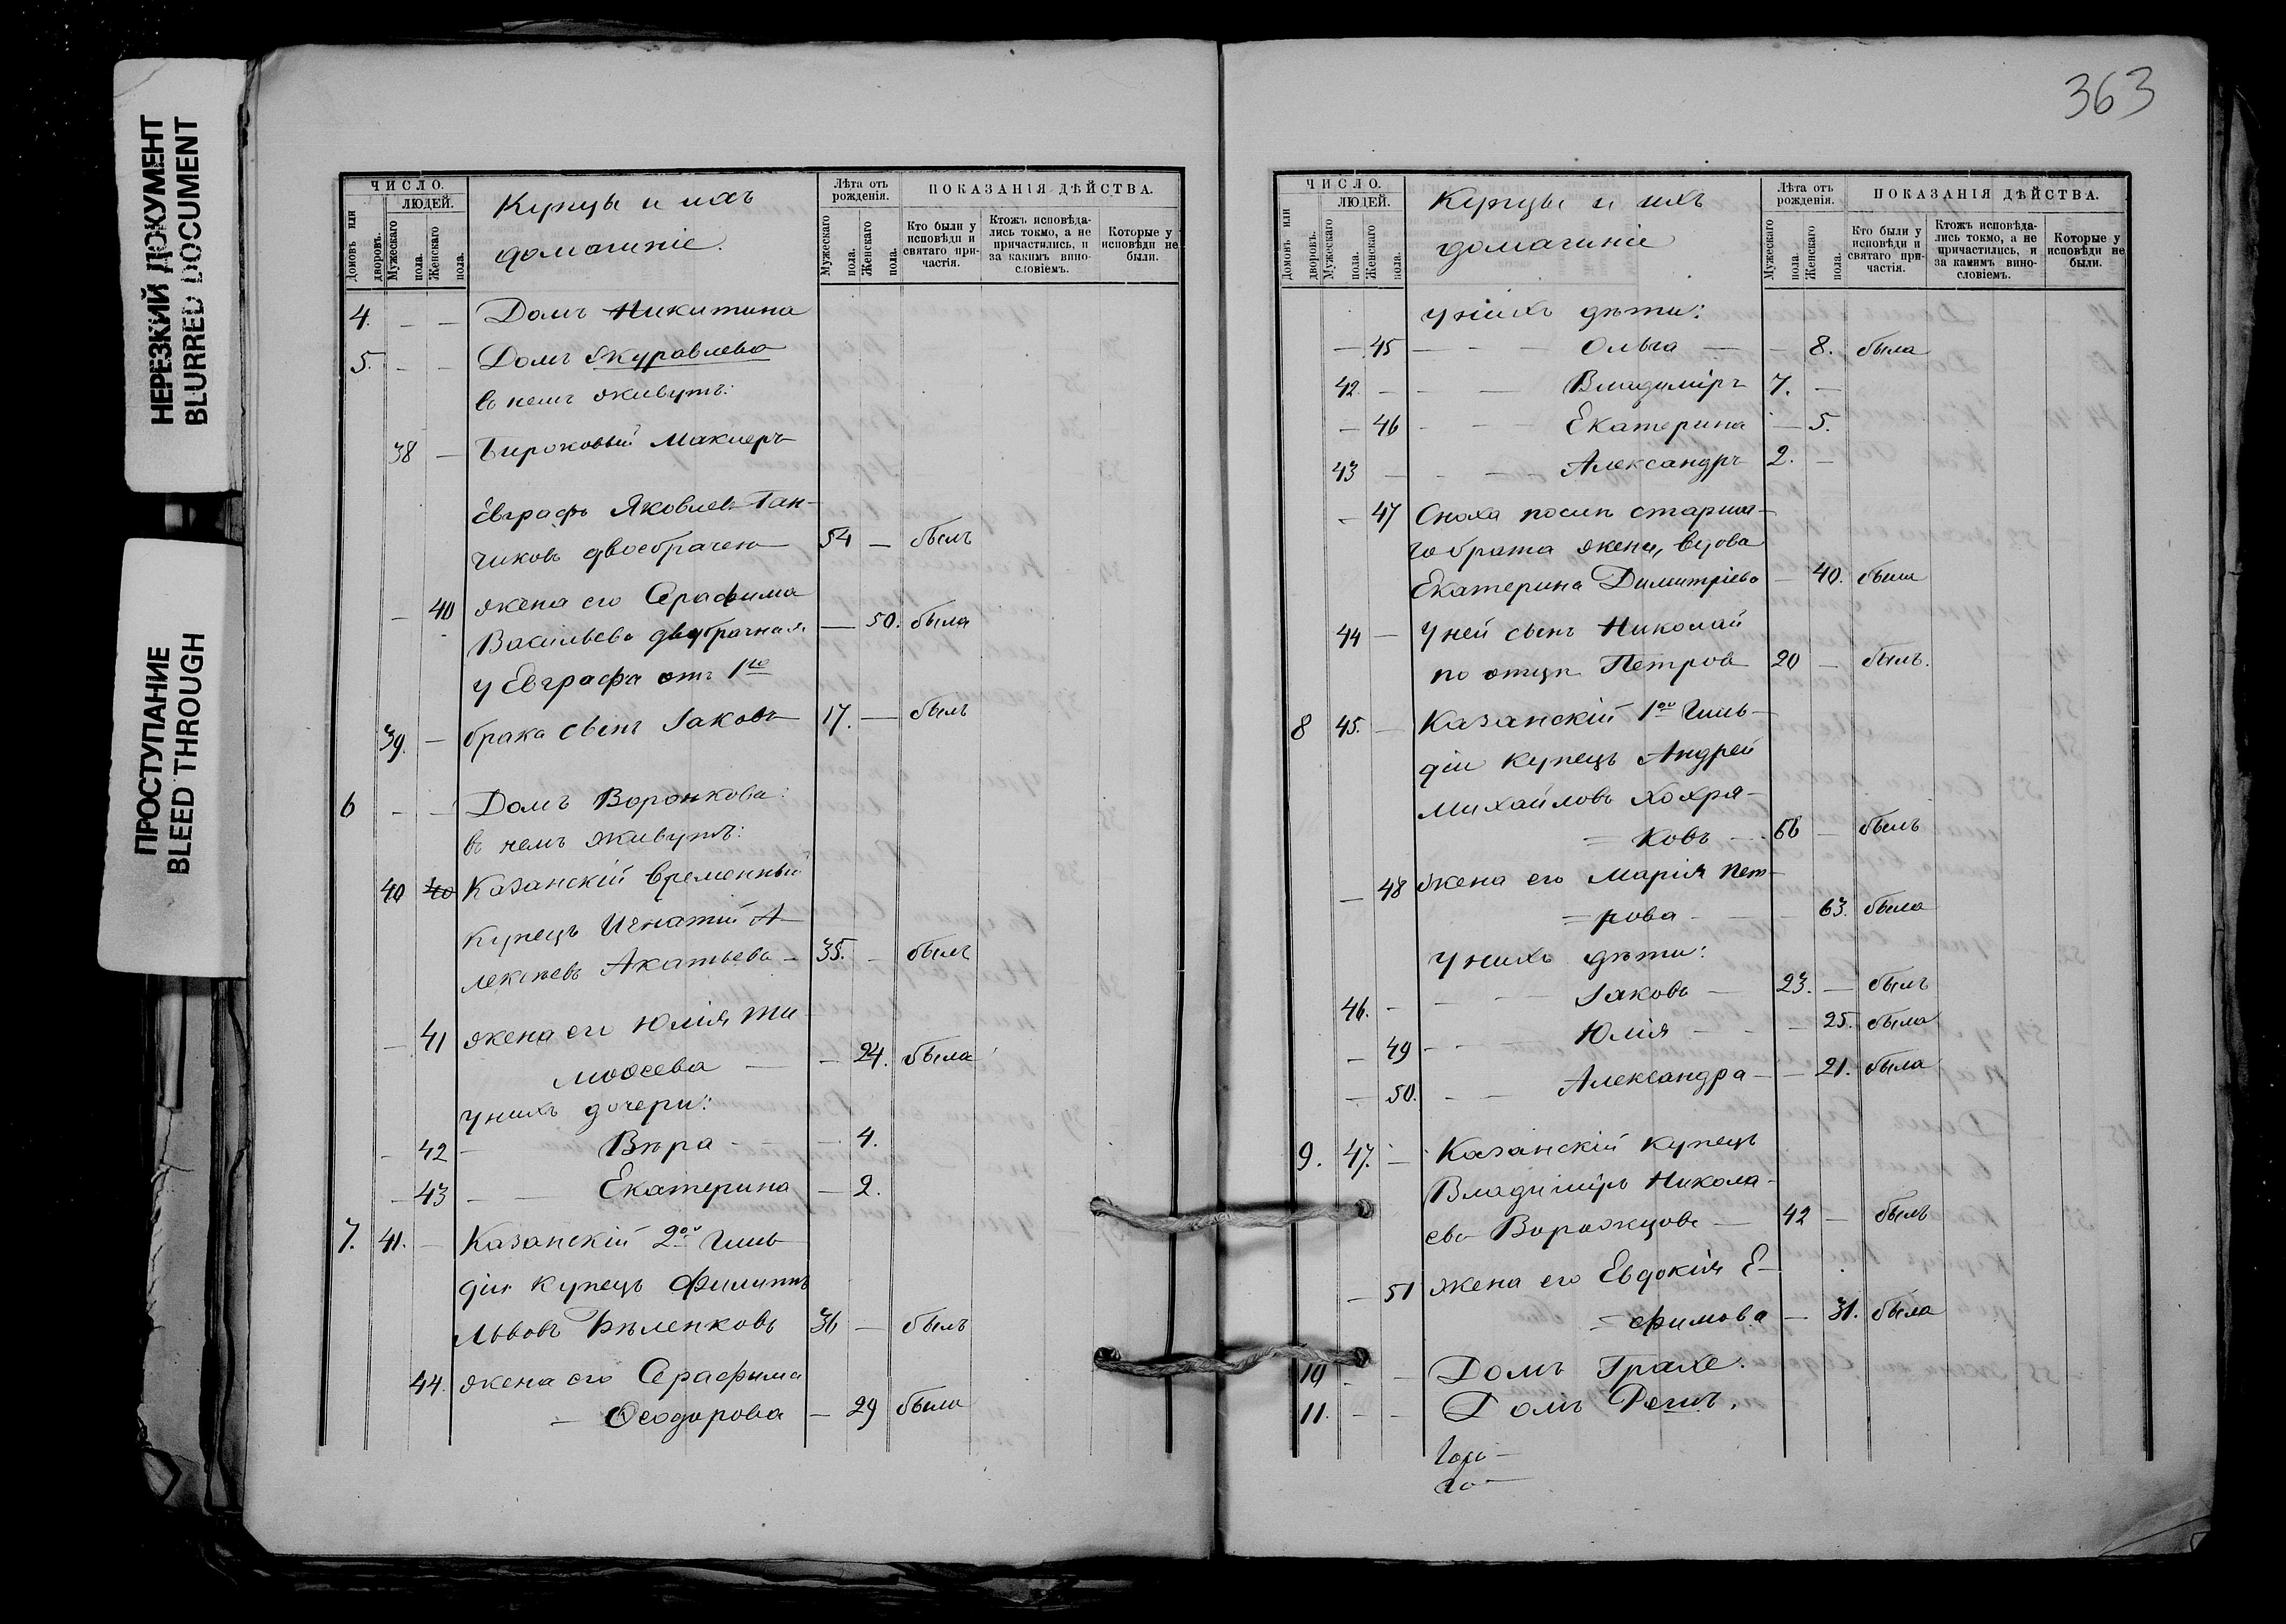 НЕРЕЗКИЙ ДОКУМЕНТ
BLURRED DOCUMENT
ПРОСТУПАНИЕ
BLEED THROUGH
ЧИСЛО.
ЛЮДЕЙ.
Домовъ или дворовъ.
Мужескаго пола.
Женскаго пола.
Купцы и ихъ
домашніе.
Лѣта отъ рожденія.
Мужескаго пола.
Женскаго пола.
ПОКАЗАНІЯ ДѢЙСТВА.
Кто были у исповѣди и святаго причастія.
Ктожъ исповѣдались токмо, а не причастились, и за какимъ винословіемъ.
Которые у исповѣди не были.
4. — — Домъ Никитина
5. — — Домъ Журавлева
въ немъ живутъ:
38 — Биржовый Маклеръ
Евграфъ Яковлевъ Ган-
чиковъ двоебрачен 54 — былъ
— 40 жена его Серафима
Васильева двубрачная — 50. была
у Евграфа отъ 1го
39. — брака сынъ Іаковъ 17. — былъ
6 — — Домъ Воронкова
въ немъ живутъ:
40 40 Казанскій временный
купецъ Игнатій А-
лексѣевъ Акатьевъ — 35. — былъ
— 41 жена его Юлія Ти
моѳеева — — 24. была
у нихъ дочери:
— 42 — Вѣра — — 4.
— 43 — — Екатерина — 2.
7. 41. — Казанскій 2ой Гиль-
діи купецъ Филиппъ
Львовъ Бѣленковъ 36 — былъ
44. жена его Серафима
— Ѳеодорова — 29 была
363
ЧИСЛО.
ЛЮДЕЙ.
Домовъ или дворовъ.
Мужескаго пола.
Женскаго пола.
Купцы и ихъ
домашніе
Лѣта отъ рожденія.
Мужескаго пола.
Женскаго пола.
ПОКАЗАНІЯ ДѢЙСТВА.
Кто были у исповѣди и святаго причастія.
Ктожъ исповѣдались токмо, а не причастились, и за какимъ винословіемъ.
Которые у исповѣди не были.
у нихъ дѣти:
— 45 — — — Ольга — — 8. была
42. — — — Владиміръ 7. —
— 46 — — — Екатерина — 5.
43 — — — Александръ 2. —
— 47 Сноха послѣ старша-
го брата жена, вдова
Екатерина Димитріева — 40. была
44 — У ней сынъ Николай
по отцѣ Петровъ 20 — былъ.
8 45. — Казанскій 1ой Гиль-
діи купецъ Андрей
Михайловъ Хохря-
= ковъ — 66 — былъ
— 48 жена его Марія Пет-
= рова — — 63. была
у нихъ дѣти:
46. — — — Іаковъ — 23. — былъ
— 49 — — Юлія — — — 25. была
— 50. — — Александра — — 21. была
9. 47. — Казанскій купецъ
Владиміръ Никола-
евъ Ворожцовъ — 42 — былъ
— 51 жена его Евдокія Е-
= фимова — 31. была
10 — — Домъ Грахе.
11. — — Домъ